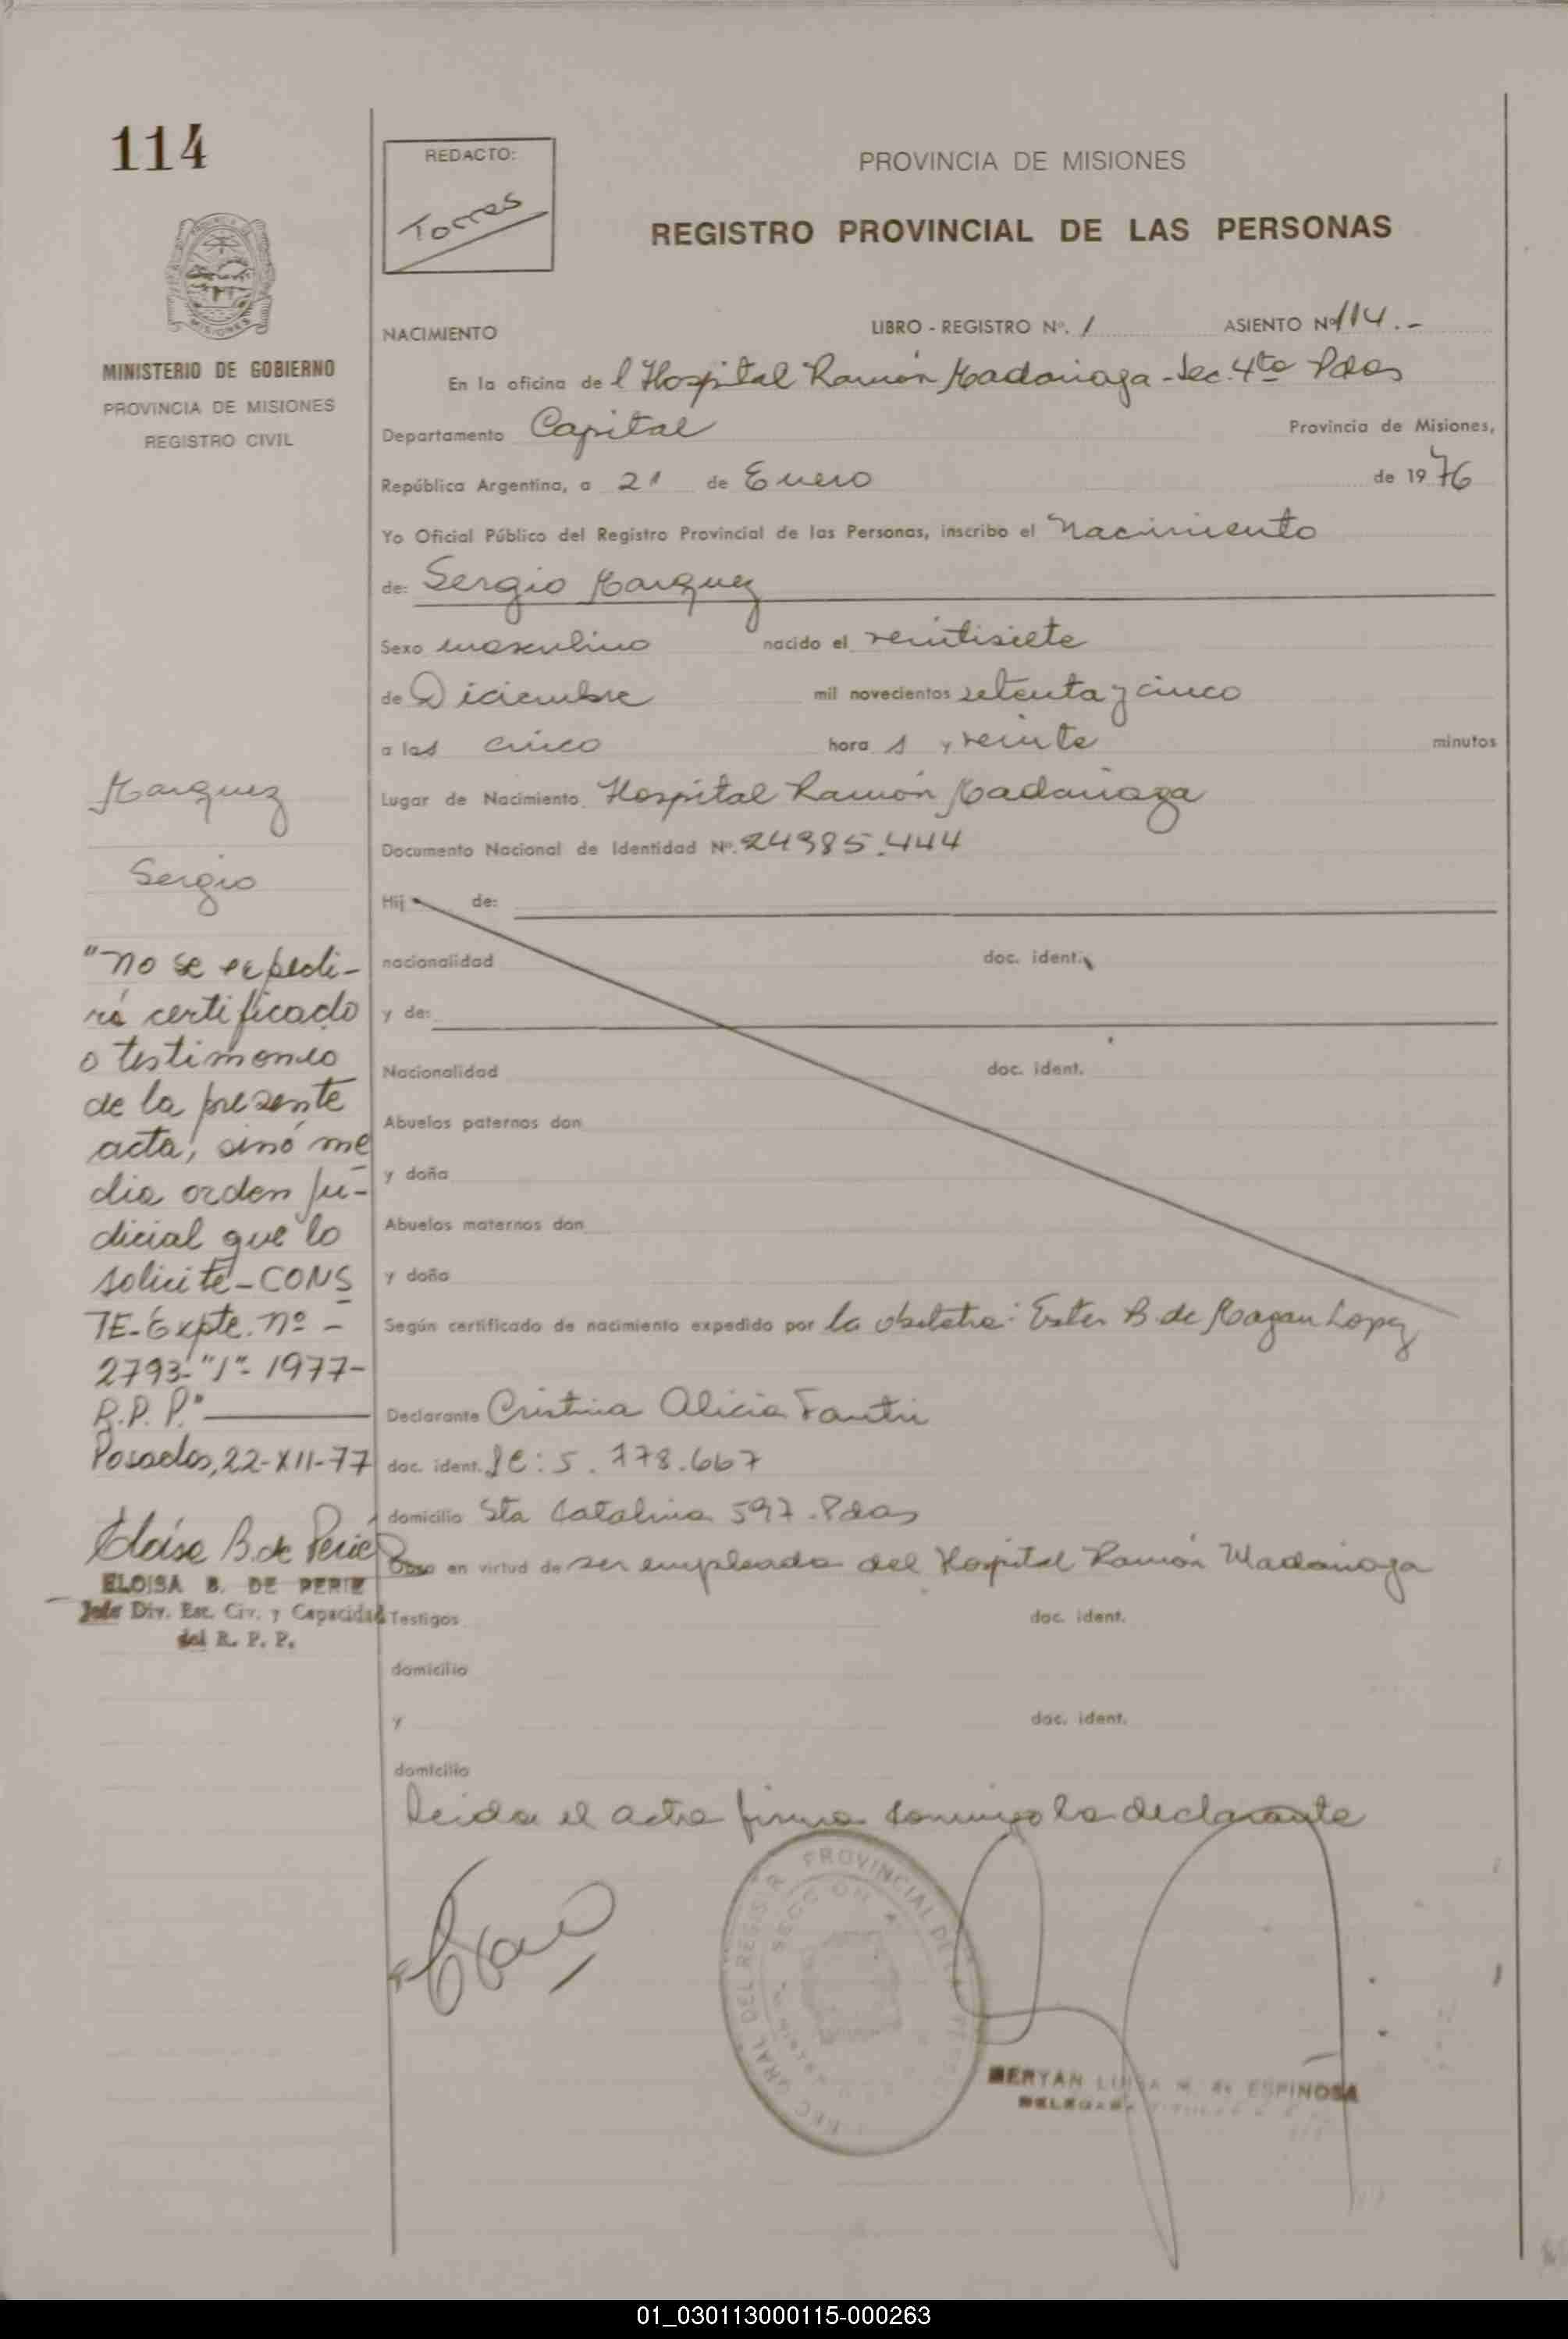 114
REDACTO:
Torres
PROVINCIA DE MISIONES
REGISTRO PROVINCIAL DE LAS PERSONAS
MISIONES
MINISTERIO DE GOBIERNO
PROVINCIA DE MISIONES
REGISTRO CIVIL
NACIMIENTO LIBRO - REGISTRO Nº. 1 ASIENTO Nº 114.-
En la oficina de l Hospital Ramón Madariaga - Sec. 4ta Pdas
Departamento Capital Provincia de Misiones,
República Argentina, a 21 de Enero de 1976
Yo Oficial Público del Registro Provincial de las Personas, inscribo el Nacimiento
de: Sergio Marquez
Sexo masculino nacido el veintisiete
de Diciembre mil novecientos setenta y cinco
a las cinco hora s y veinte minutos
Lugar de Nacimiento Hospital Ramón Madariaga
Documento Nacional de Identidad Nº. 24385.444
Hij de:
nacionalidad doc. ident.
y de:
Nacionalidad doc. ident.
Abuelos paternos don
y doña
Abuelos maternos don
y doña
Según certificado de nacimiento expedido por la obstetra: Ester B. de Magan Lopez
Declarante Cristina Alicia Fantin
doc. ident. LC: 5.778.667
domicilio Sta Catalina 597. Pdas
Obra en virtud de ser empleada del Hospital Ramón Madariaga
Testigos doc. ident.
domicilio
y doc. ident.
domicilio
Leida el acta firma conmigo la declarante
Marquez
Sergio
"No se expedi-
rá certificado
o testimonio
de la presente
acta, sinó me
dia orden ju-
dicial que lo
solicite-CONS
TE-Expte. nº -
2793-"J"- 1977-
R.P.P."
Posadas, 22-XII-77
Eloisa B. de Perié
ELOISA B. DE PERIE
Jefe Div. Est. Civ. y Capacidad
del R. P. P.
PROVINCIAL DE LAS
SECCION 4
GRAL DEL REGISTR
MERYAN LUISA M. de ESPINOSA
DELEGADA TITULAR
01_030113000115-000263